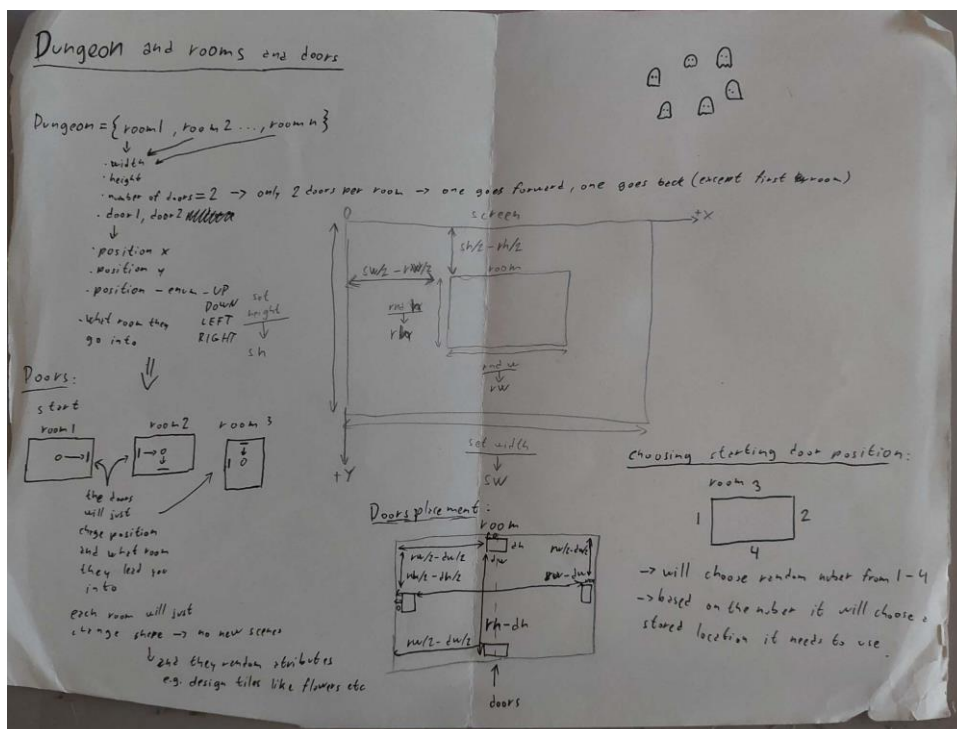 Dungeon and rooms and doors
Dungeon = { room1 , room 2 ..., room n }
· width
· height
· number of doors = 2 → only 2 doors per room → one goes forward, one goes back (except first room)
· door1, door2
· position x
· position y
· position - enum - UP
DOWN
LEFT
RIGHT
· what room they
go into
set
height
sh
0
screen
+X
sh/2 - rh/2
sw/2 - rw/2
room
rh
rnd w
rw
set width
sw
+Y
Doors:
start
room1
room2
room 3
the doors
will just
chage position
and what room
they lead you
into
each room will just
change shape → no new scenes
and they random atributes
e.g. design tiles like flowers etc
Doors plicement:
room
dh
dw
rw/2 - dw/2
rh/2 - dh/2
rw/2 - dw/2
rw - dw
rh - dh
rw/2 - dw/2
doors
choosing starting door position:
room
3
1
2
4
→ will choose random nuber from 1-4
→ based on the nuber it will choose a
stored location it needs to use.